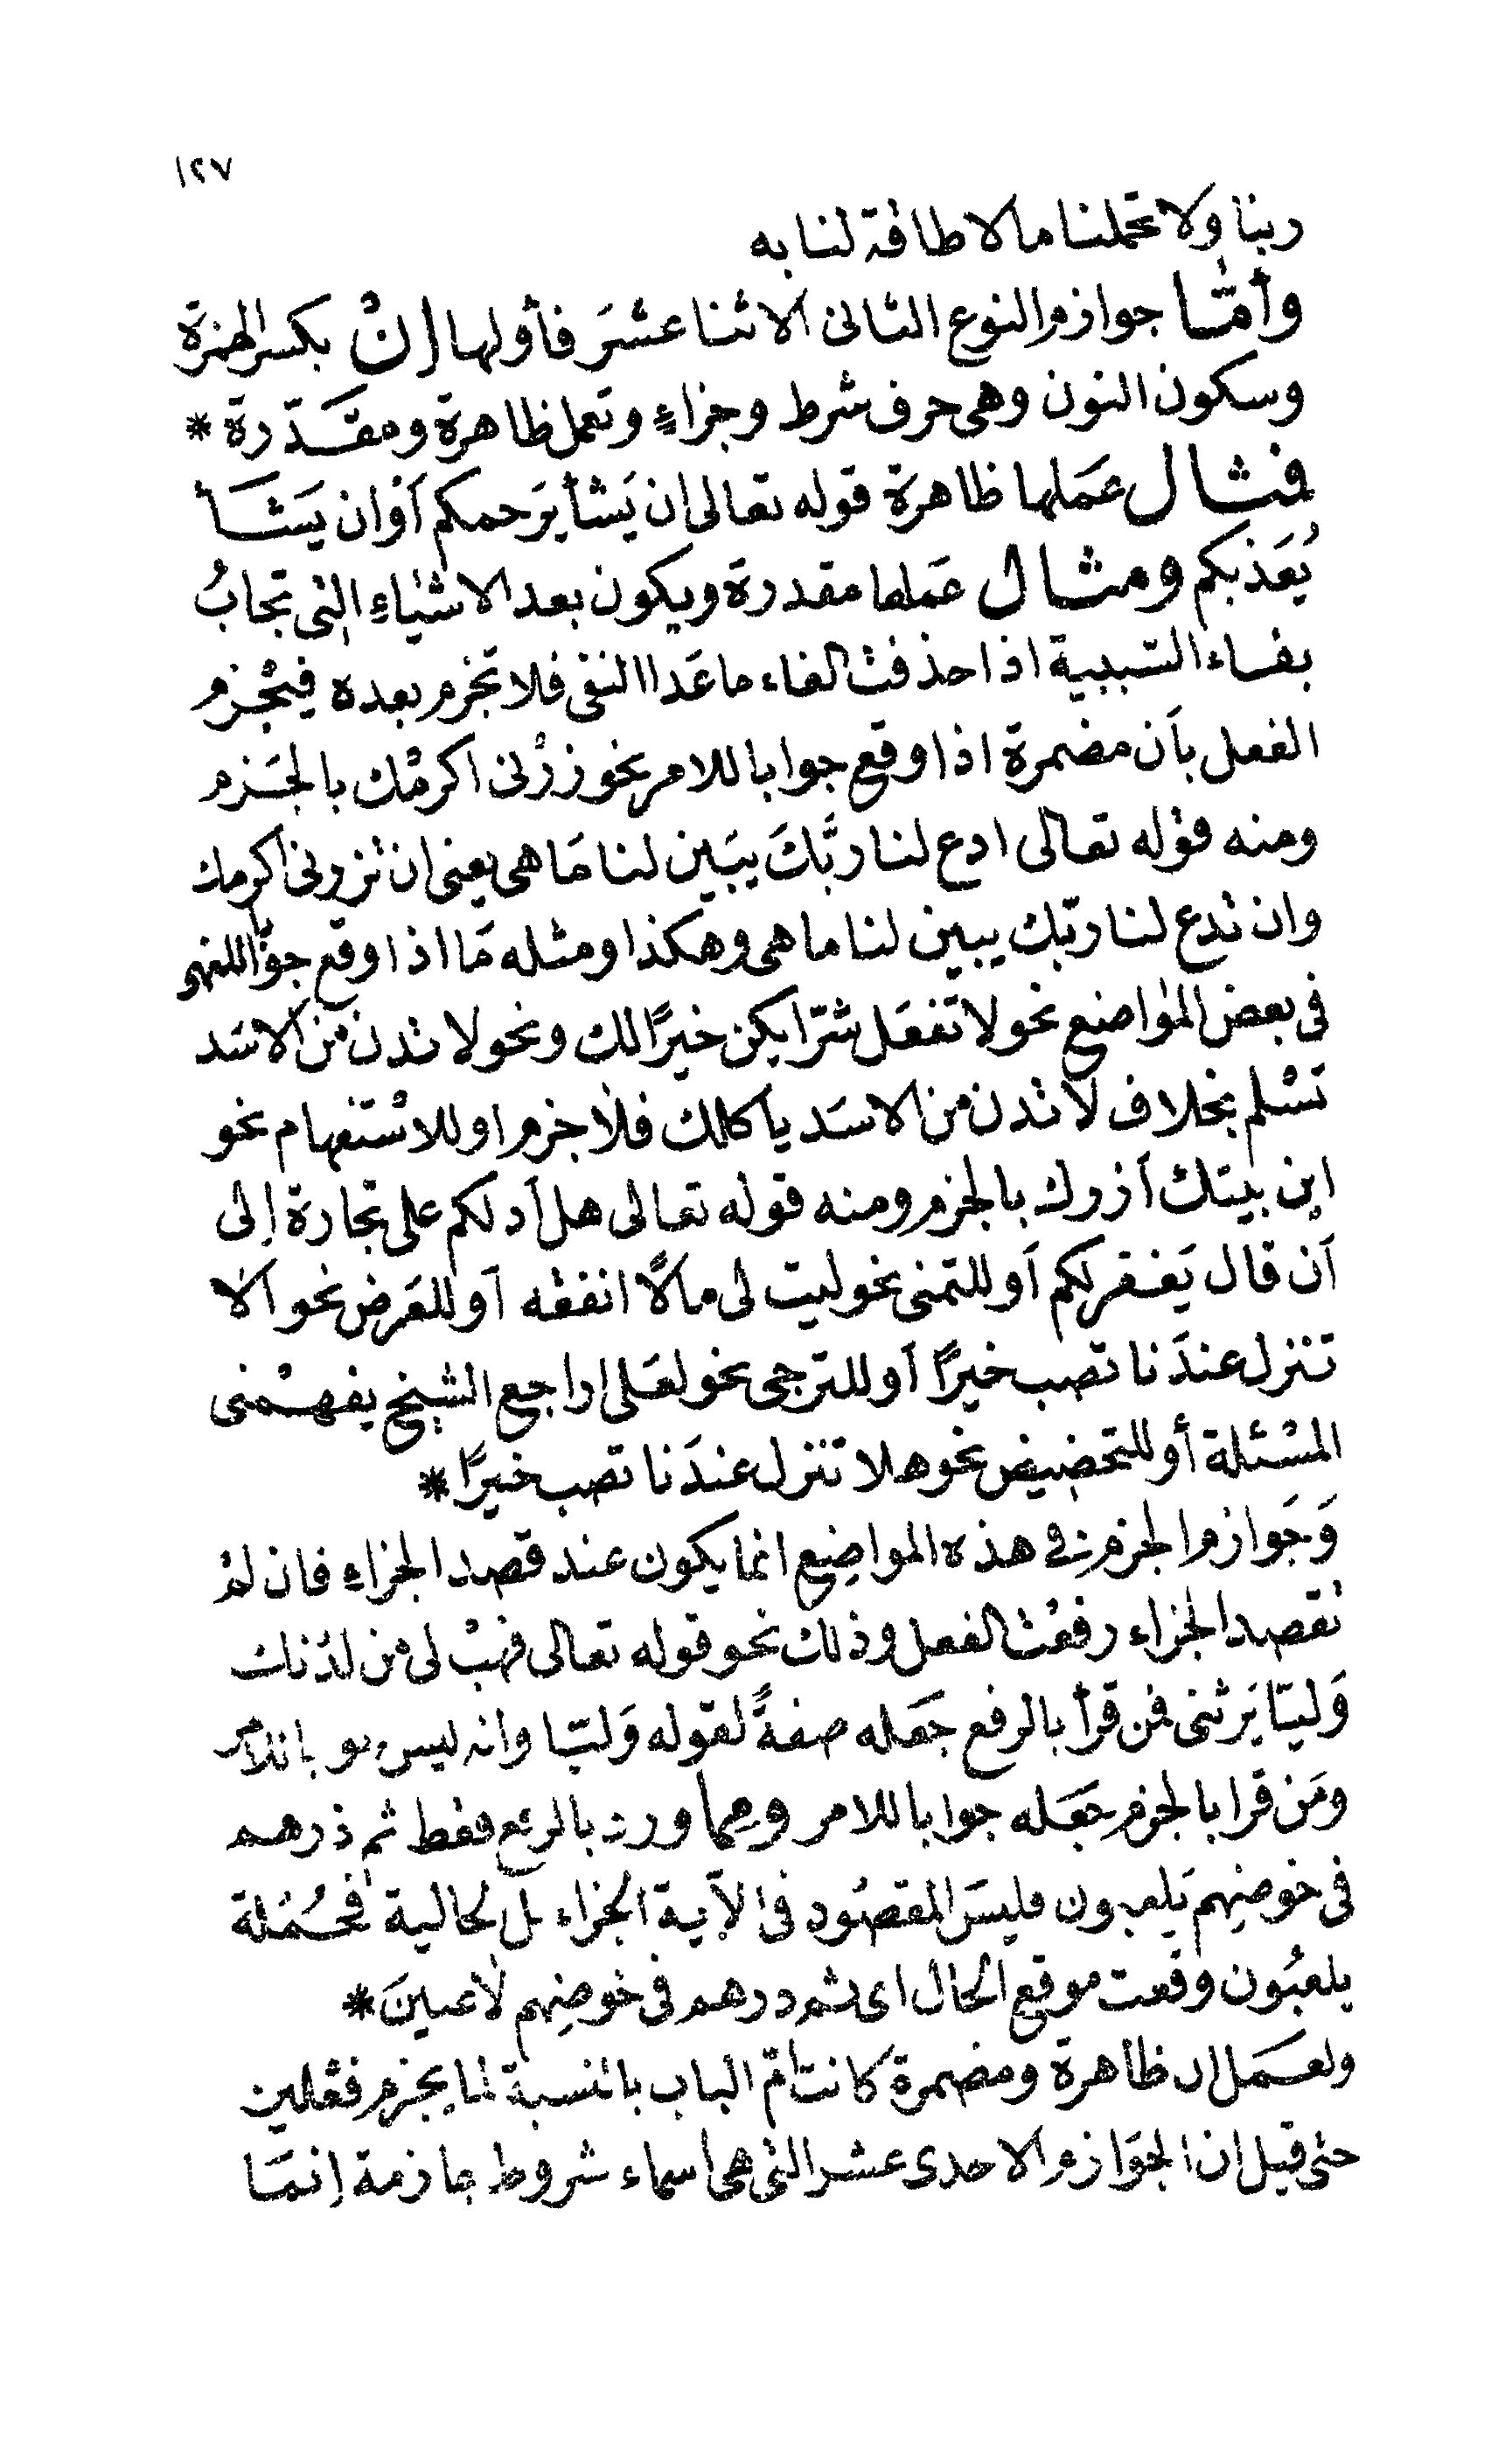 ١٢٧
ربنا ولا تحملنا مالا طاقة لنا به
وأمّا جوازم النوع الثانى الاثنا عشَر فأولها إنْ بكسر الهمزة
وسكون النون وهى حرف شرط وجزاءٍ وتعمل ظاهرة ومقَدّرة *
فمثال عمَلها ظاهرة قوله تعالى ان يَشأ يَرحمكم أوان يَشَأ
يُعَذبكم ومثال عملها مقدرة ويكون بعد الاشياءِ التى تجابُ
بفاء السّببية اذا حذفت الفاء ماعَدا النفى فلا تجزم بعده فيجْزم
الفعل بأن مضمرة اذا وقع جوابا للامر نحو زرْنى اكرمْك بالجَزم
ومنه قوله تعالى ادع لنا ربَّكَ يبَين لنا مَا هى يعنى ان تزرونى اكرمك
وان تدع لنا ربّك يبين لنا ما هى وهكذا ومثله مَا اذا وقع جوَابًا للنهى
فى بعض المواضع نحو لا تفعَل شرّا يكن خيرًا لك ونحو لا تدن من الاسَد
تسْلم بخلاف لا تدن من الاسَد يأكلك فلا جزم او للاسْتفهام نحو
اين بيتك أزورك بالجزم ومنه قوله تعالى هل أدلكم على تجارة إلى
أن قال يَغفر لكم أو للتمنى نحو ليت لى مالًا انفقه أو للعَرض نحو الا
تنزل عندَنا تصب خيرًا أو للترجى نحو لعَلى اراجع الشيخ يفهمْنى
المسْئلة أو للتحضيض نحو هلا تنزل عندَنا تصب خيرًا *
وَجَوازم الجزم فى هذه المواضِع انما يكون عند قصد الجزاءِ فان لمْ
تقصد الجزاء رفعْت الفعل وذلك نحو قوله تعالى فهبْ لى من لدُنك
وَليّا يَرثنى فمن قرأ بالرفع جَعَله صفةً لقوله وَليّا وانه ليس جوابا للامر
ومَن قرا بالجزم جَعَله جوابا للامر ومما ورد بالرفع فقط ثم ذرهم
فى خوضِهم يَلعبون فليسَ المقصُود فى الآية الجزاء بل الحالية فجُمْلة
يلعبُون وقعت موقع الحال اى ثم ذرهم فى خوضِهم لاعبينَ *
ولعمَل ان ظاهرة ومضمرة كانت أمّ الباب بالنسبة لما يجزم فعْلين
حتى قيل ان الجوَازم الاحدى عشر التى هى اسماء شروط جازمة إنمَا